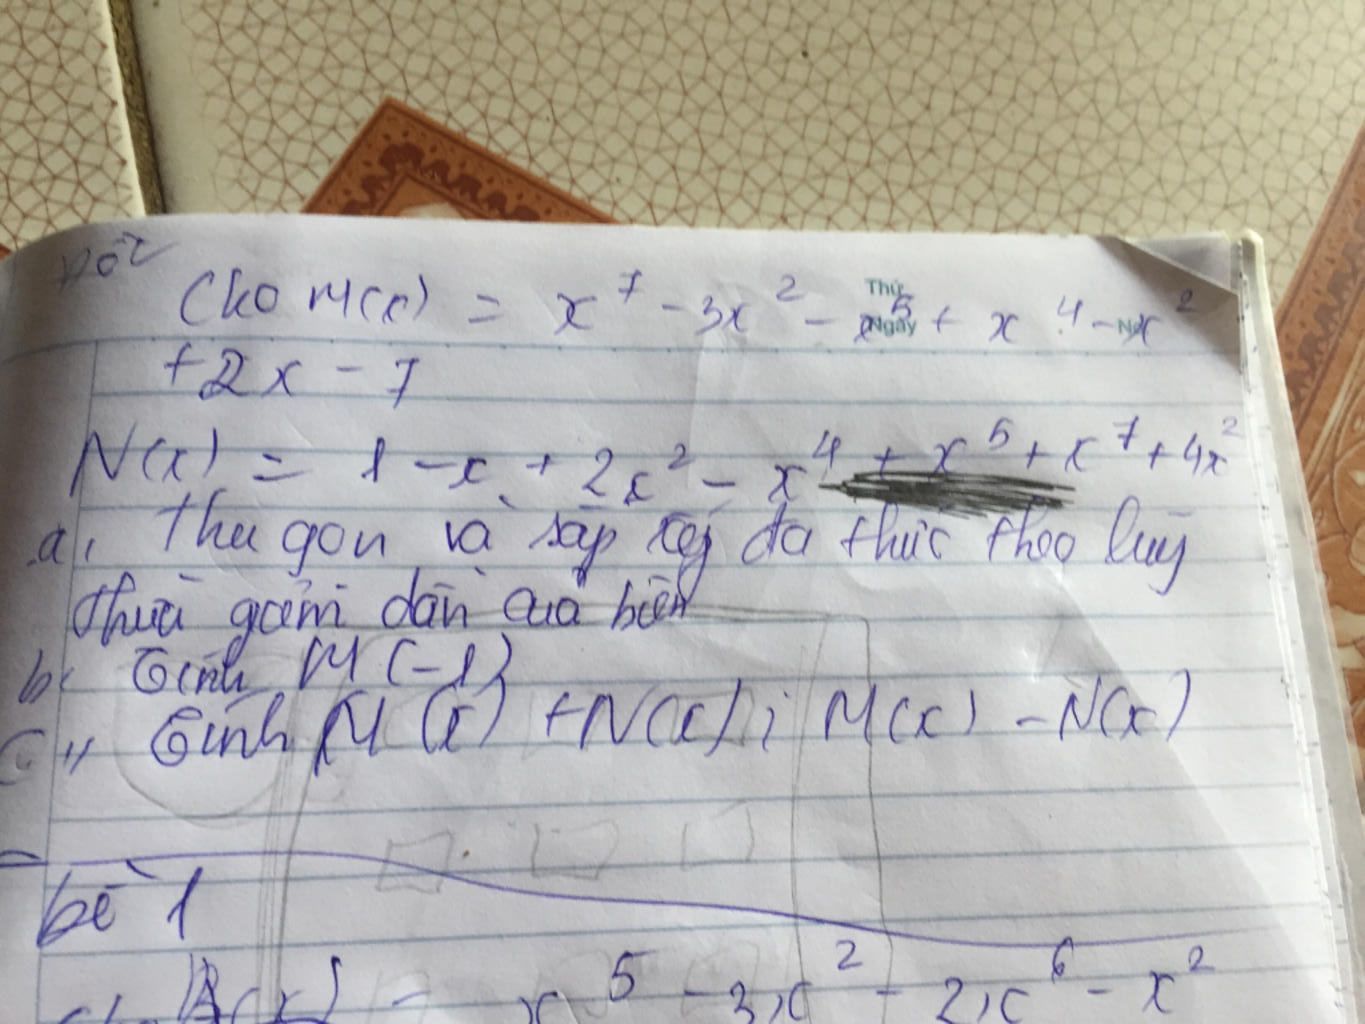 Cho M(x) = x⁷ - 3x² - x⁵ + x⁴ - x²
Thứ
Ngày
No
+2x - 7
N(x) = 1 - x + 2x² - x⁴ + x⁵ + x⁷ + 4x²
a, Thu gọn và sắp xếp đa thức theo luỹ
thừa giảm dần của biến
b, Tính M(-1)
c,, Tính M(x) + N(x) ; M(x) - N(x)
bề 1
A(x) = x⁵ - 3x² - 2x⁶ - x²